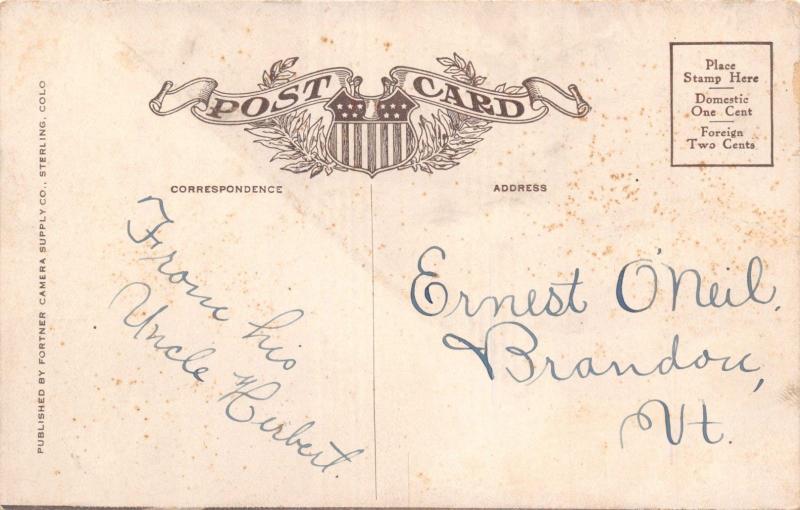 POST CARD
Place
Stamp Here
Domestic
One Cent
Foreign
Two Cents
CORRESPONDENCE
ADDRESS
PUBLISHED BY FORTNER CAMERA SUPPLY CO., STERLING, COLO
From his
Uncle Herbert.
Ernest O'Neil.
Brandon,
Vt.